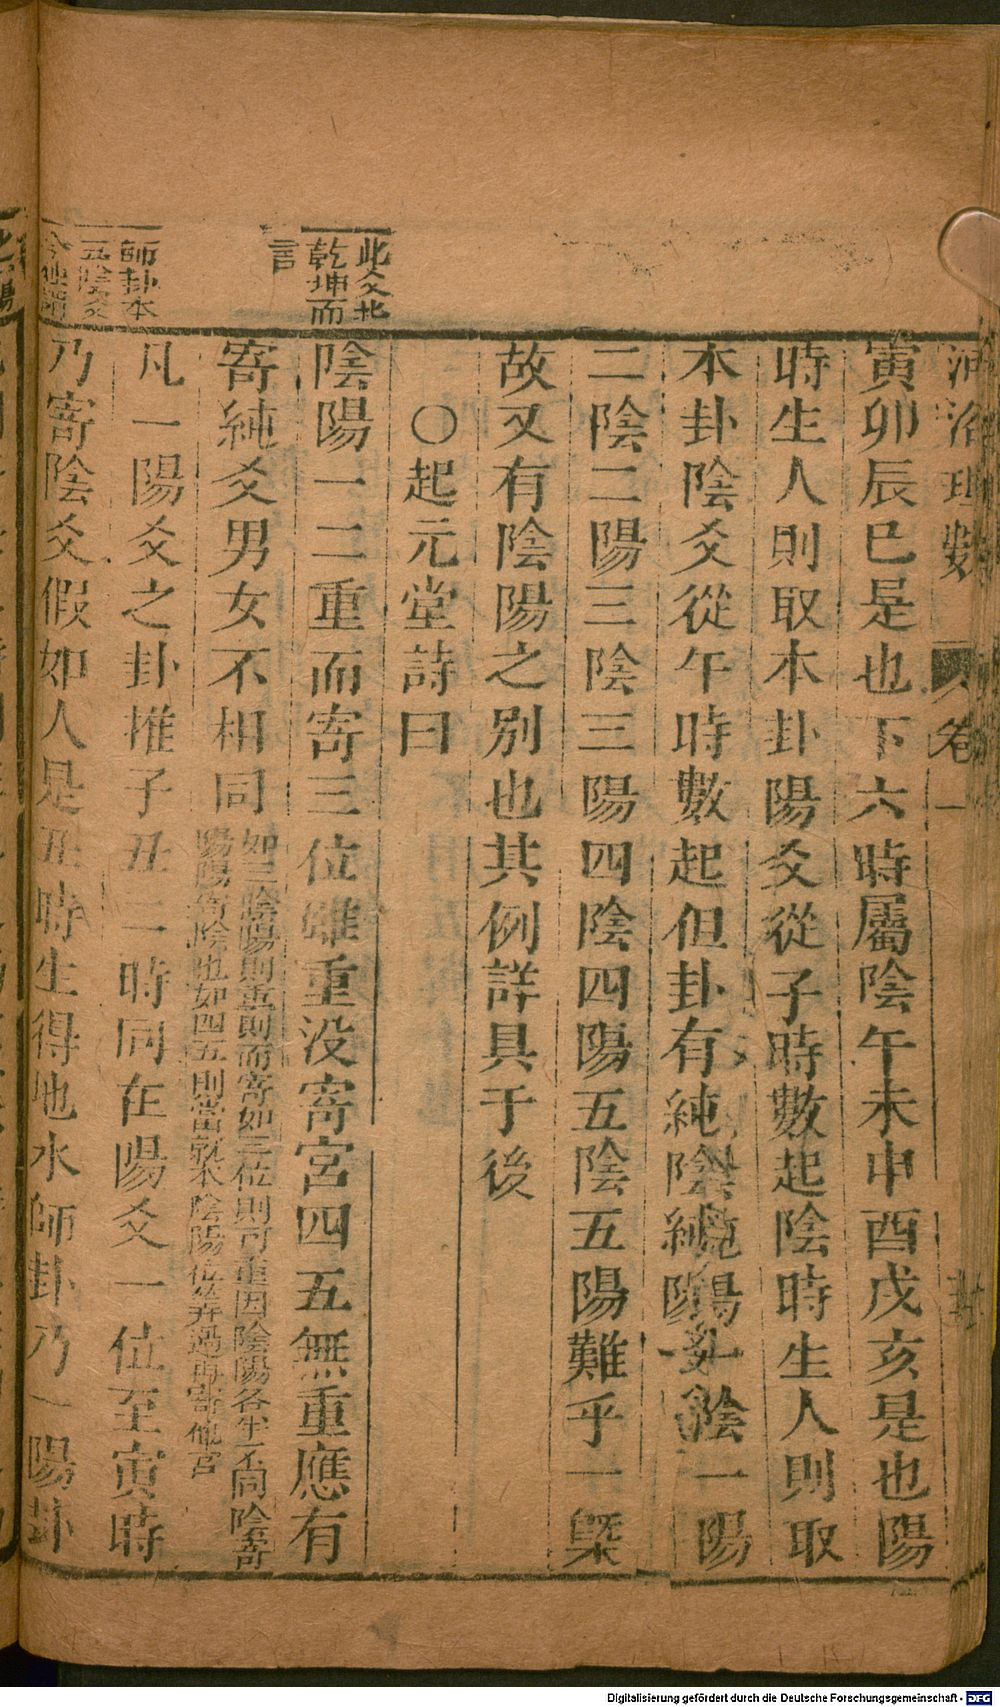 河洛理數 卷一
寅卯辰巳是也下六時屬陰午未申酉戌亥是也陽
時生人則取本卦陽爻從子時數起陰時生人則取
本卦陰爻從午時數起但卦有純陰純陽一陰一陽
二陰二陽三陰三陽四陰四陽五陰五陽難乎一槩
故又有陰陽之别也其例詳具于後
○起元堂詩曰
此爻北
乾坤而
言
陰陽一二重而寄三位雖重没寄宮四五無重應有
寄純爻男女不相同
如三陰陽則重則而寄如三位則可重因陰陽各半不同陰寄
陽陽寄陰也如四五則當就本陰陽位筭過再寄他宮
師卦本
五陰爻
凡一陽爻之卦推子丑二時同在陽爻一位至寅時
乃寄陰爻假如人是丑時生得地水師卦乃一陽卦
Digitalisierung gefördert durch die Deutsche Forschungsgemeinschaft - DFG